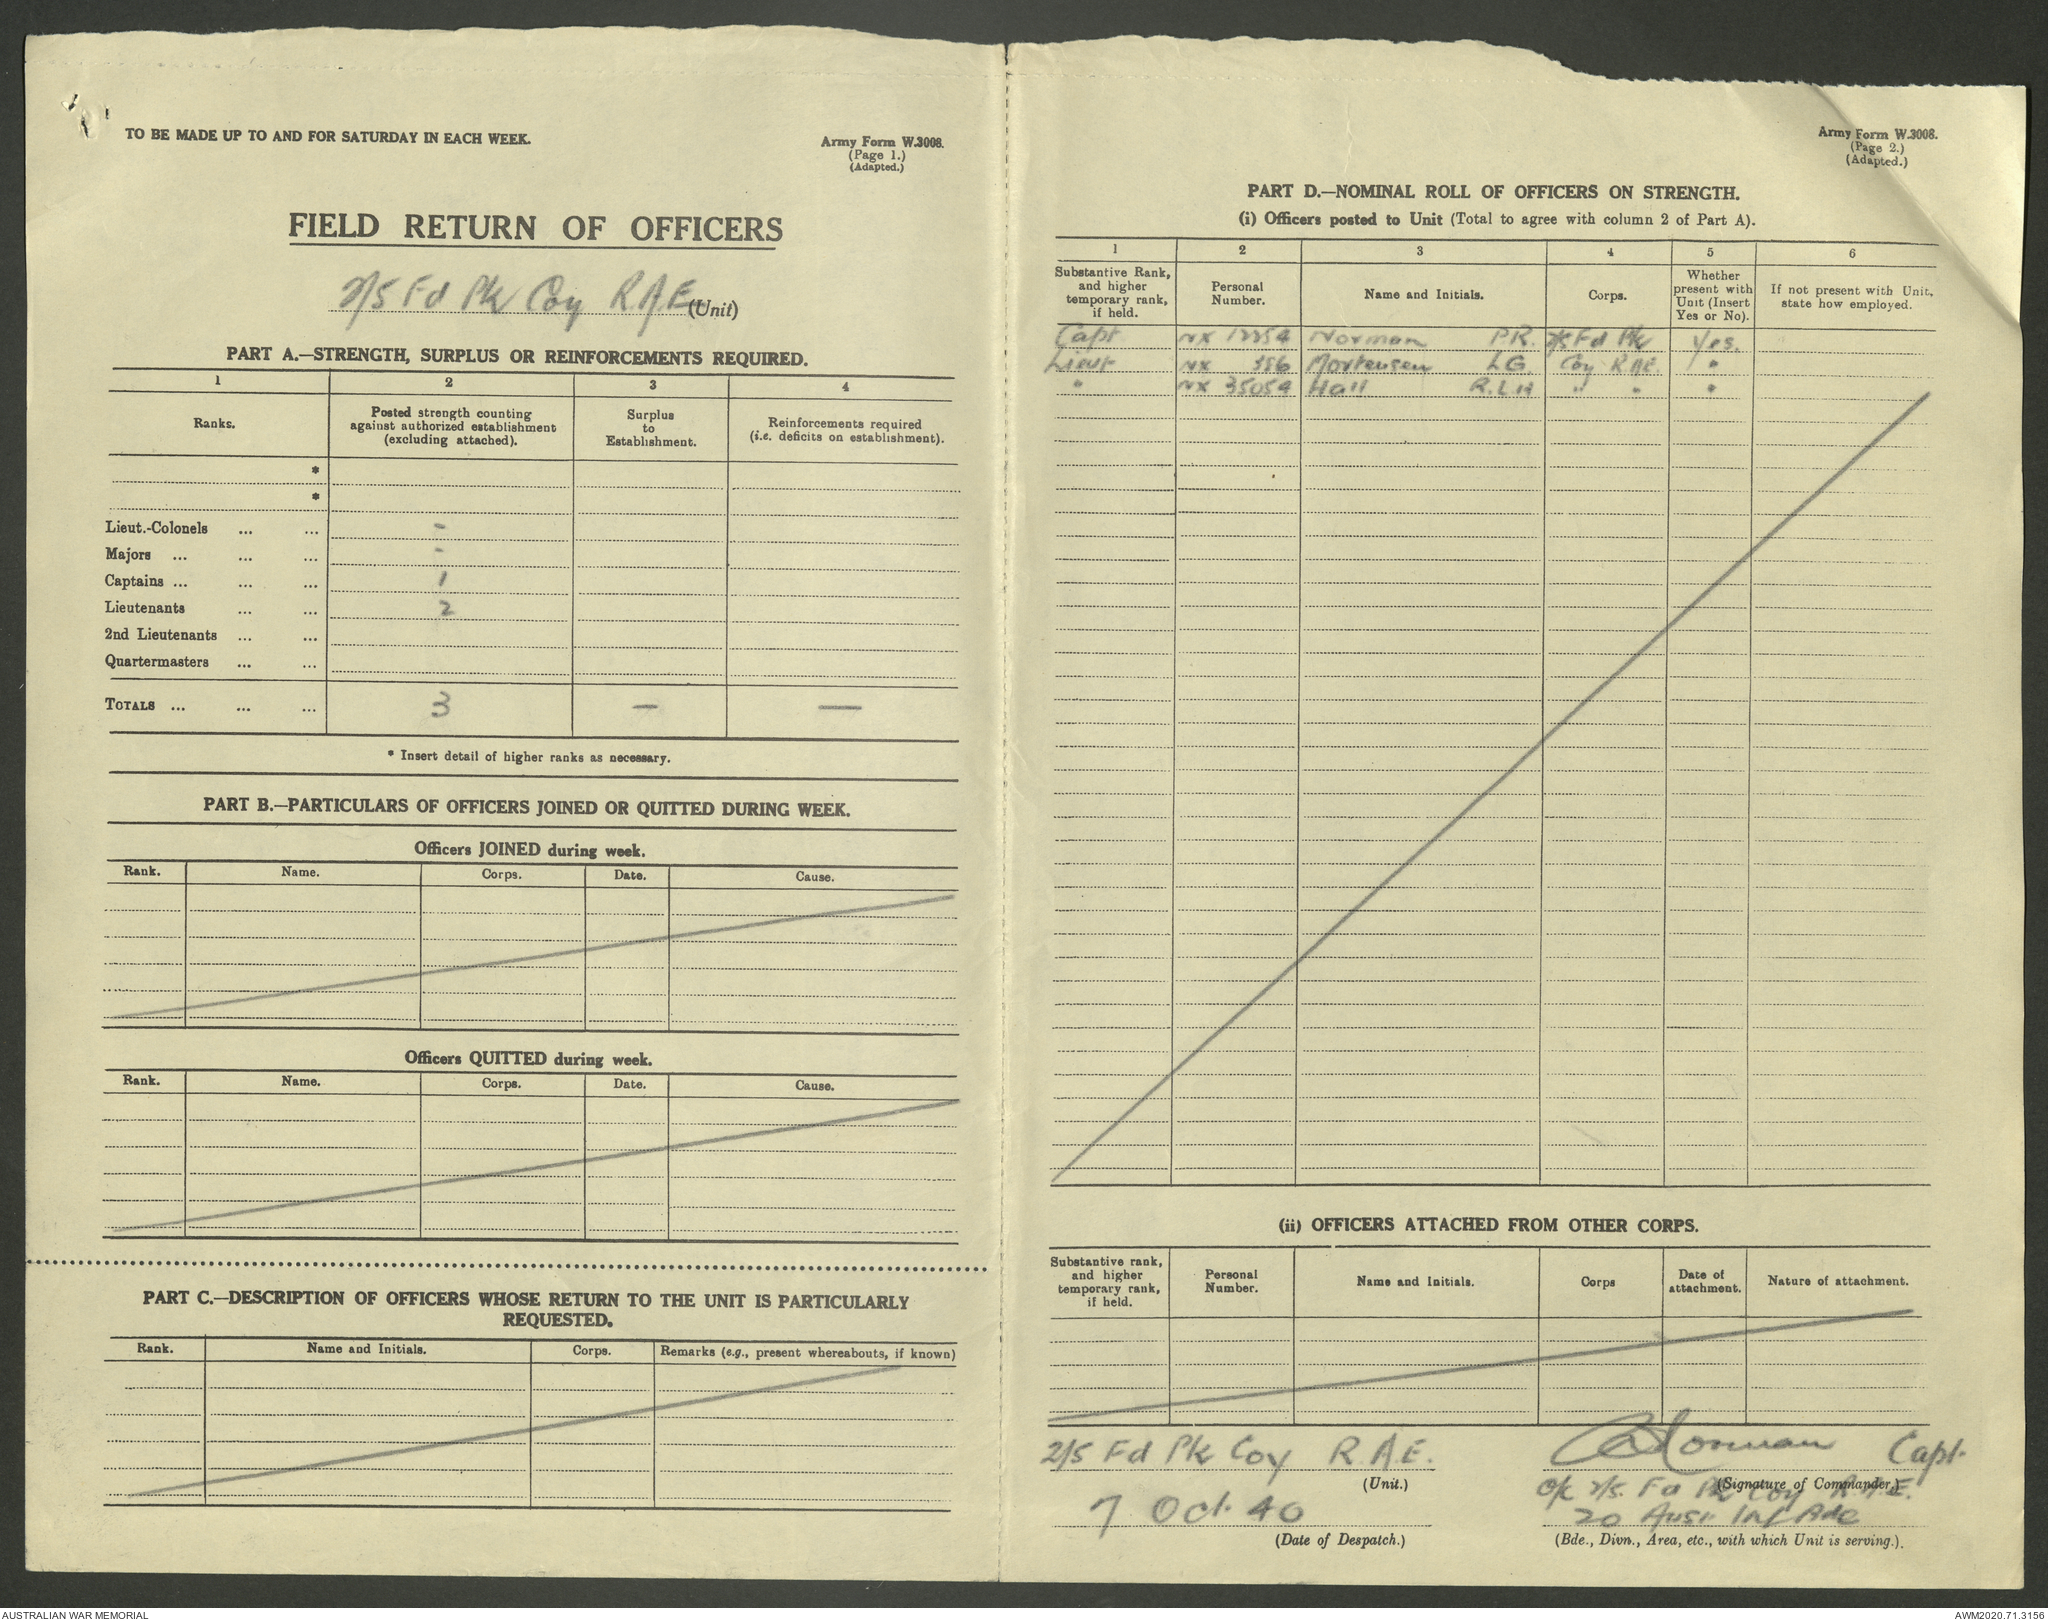 TO BE MADE UP TO AND FOR SATURDAY IN EACH WEEK.
Army Form W.3008.
(Page 1.)
(Adapted.)
FIELD RETURN OF OFFICERS
2/5 Fd Pk Coy R.A.E. (Unit)
PART A.—STRENGTH, SURPLUS OR REINFORCEMENTS REQUIRED.
1 2 3 4
Ranks. Posted strength counting against authorized establishment (excluding attached). Surplus to Establishment. Reinforcements required (i.e. deficits on establishment).
*
*
Lieut.-Colonels ... ... -
Majors ... ... ... -
Captains ... ... ... 1
Lieutenants ... ... 2
2nd Lieutenants ... ...
Quartermasters ... ...
TOTALS ... ... ... 3 — —
* Insert detail of higher ranks as necessary.
PART B.—PARTICULARS OF OFFICERS JOINED OR QUITTED DURING WEEK.
Officers JOINED during week.
Rank. Name. Corps. Date. Cause.
Officers QUITTED during week.
Rank. Name. Corps. Date. Cause.
PART C.—DESCRIPTION OF OFFICERS WHOSE RETURN TO THE UNIT IS PARTICULARLY
REQUESTED.
Rank. Name and Initials. Corps. Remarks (e.g., present whereabouts, if known)
Army Form W.3008.
(Page 2.)
(Adapted.)
PART D.—NOMINAL ROLL OF OFFICERS ON STRENGTH.
(i) Officers posted to Unit (Total to agree with column 2 of Part A).
1 2 3 4 5 6
Substantive Rank, and higher temporary rank, if held. Personal Number. Name and Initials. Corps. Whether present with Unit (Insert Yes or No). If not present with Unit, state how employed.
Capt NX 12354 Norman P.R. 2/5 Fd Pk Yes.
Lieut NX 386 Mortensen L.G. Coy R.A.E. "
" NX 35054 Hall R.L.H " " "
(ii) OFFICERS ATTACHED FROM OTHER CORPS.
Substantive rank, and higher temporary rank, if held. Personal Number. Name and Initials. Corps Date of attachment. Nature of attachment.
2/5 Fd Pk Coy R.A.E. Norman Capt.
(Unit.) (Signature of Commander.)
O/C 2/5. Fd Pk Coy R.A.E.
7 Oct 40 20 Aust Inf Bde
(Date of Despatch.) (Bde., Divn., Area, etc., with which Unit is serving.).
AUSTRALIAN WAR MEMORIAL AWM2020.71.3156